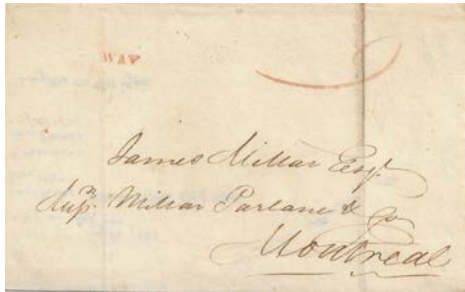 WAY
James Millar Esqr
Messrs. Millar Parlane & Co
Montreal